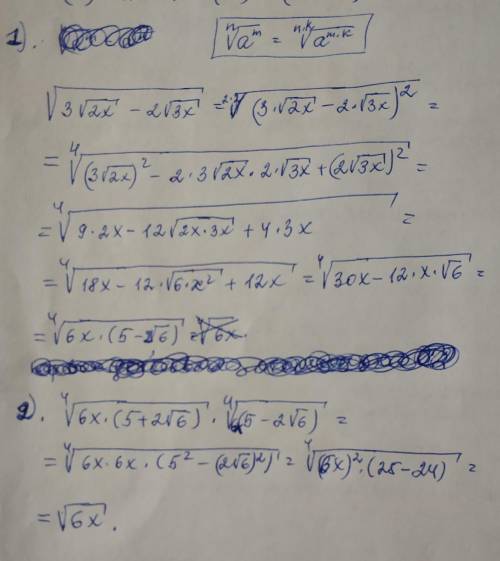 1). ⁿ√(a^m) = ^(n·k)√(a^(m·k))
√(3√(2x) - 2√(3x)) = ^(2·2)√((3·√(2x) - 2·√(3x))^2) =
= ⁴√((3√(2x))^2 - 2·3√(2x)·2·√(3x) + (2√(3x))^2) =
= ⁴√(9·2x - 12√(2x·3x) + 4·3x) =
= ⁴√(18x - 12·√(6·x^2) + 12x) = ⁴√(30x - 12·x·√6) =
= ⁴√(6x·(5-2√6))
2). ⁴√(6x·(5+2√6)) · ⁴√(6x(5-2√6)) =
= ⁴√(6x·6x·(5^2 - (2√6)^2)) = ⁴√((6x)^2·(25-24)) =
= √(6x).